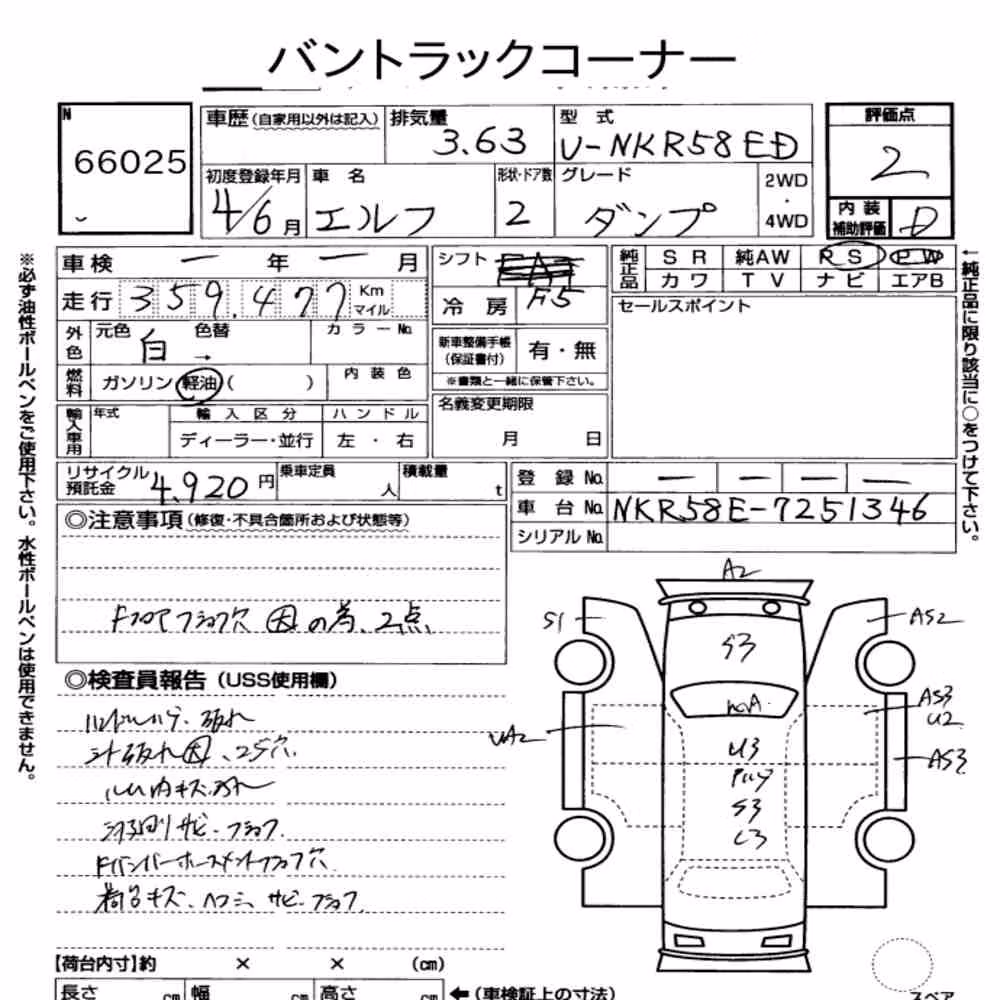 バントラックコーナー
N
66025
車歴 (自家用以外は記入)
排気量
3.63
型 式
U-NKR58ED
評価点
2
初度登録年月
4/6月
車 名
エルフ
形状・ドア数
2
グレード
ダンプ
2WD
・
4WD
内 装
補助評価
D
車検 ー 年 ー 月
走行 359,477 Km
マイル
シフト
F5
冷 房
純正品
S R 純AW P S P W
カ ワ T V ナ ビ エアB
セールスポイント
外色
元色 白
色替 →
カラーNo.
燃料
ガソリン 軽油 ( )
内 装 色
新車整備手帳
(保証書付)
有・無
※書類と一緒に保管下さい。
輸入車用
年式
輸 入 区 分
ディーラー・並行
ハ ン ド ル
左 ・ 右
名義変更期限
月 日
リサイクル
預託金
4,920 円
乗車定員
人
積載量
t
登 録 No.
ー ー ー ー
車 台 No.
NKR58E-7251346
シリアル No.
◎注意事項 (修復・不具合箇所および状態等)
Fフロアフショク穴 因の為、2点
◎検査員報告 (USS使用欄)
ハンドルハゲ・破れ
シート破れ因、コゲ穴
ルーム内キズ・汚れ
下廻りサビ・フショク
Fバンパーホースメントフショク穴
荷台キズ、ヘコミ、サビ、フショク
【荷台内寸】約 × × (cm)
長さ cm 幅 cm 高さ cm ←(車検証上の寸法)
※必ず油性ボールペンをご使用下さい。水性ボールペンは使用できません。
←純正品に限り該当に○をつけて下さい。
A2
S1
AS2
S3
AS3
U2
UA2
U3
AS3
S3
C3
スペア